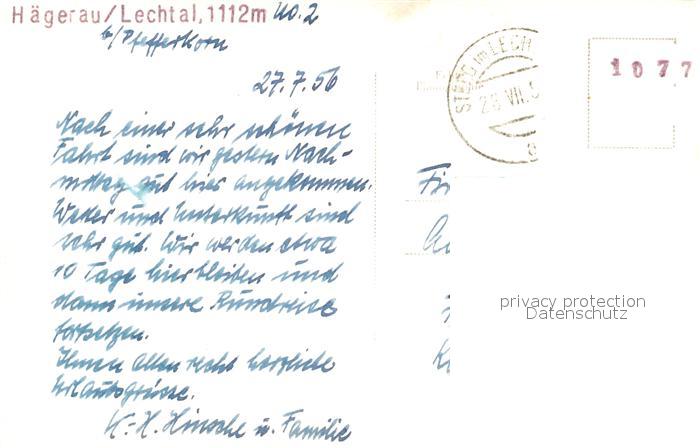 Hägerau/Lechtal, 1112m No. 2
b/Pfefferkorn
27.7.56
Nach einer sehr schönen
Fahrt sind wir gestern Nach-
mittag gut hier angekommen.
Wetter und Unterkunft sind
sehr gut. Wir werden etwa
10 Tage hierbleiben und
dann unsere Rundreise
fortsetzen.
Ihnen Allen recht herzliche
Urlaubsgrüsse.
K.-H. Hinsche u. Familie
STEEG im LECH
28 VII. 5
1077
privacy protection
Datenschutz